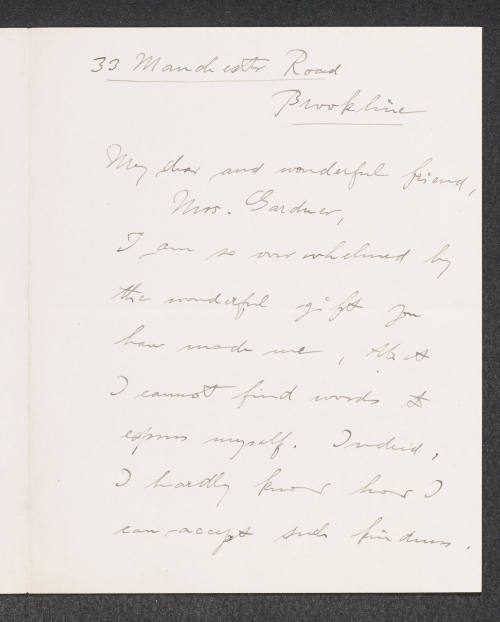 33 Manchester Road
Brookline
My dear and wonderful friend,
Mrs. Gardner,
I am so overwhelmed by
the wonderful gift you
have made me, that
I cannot find words to
express myself. Indeed,
I hardly know how I
can accept such kindness.